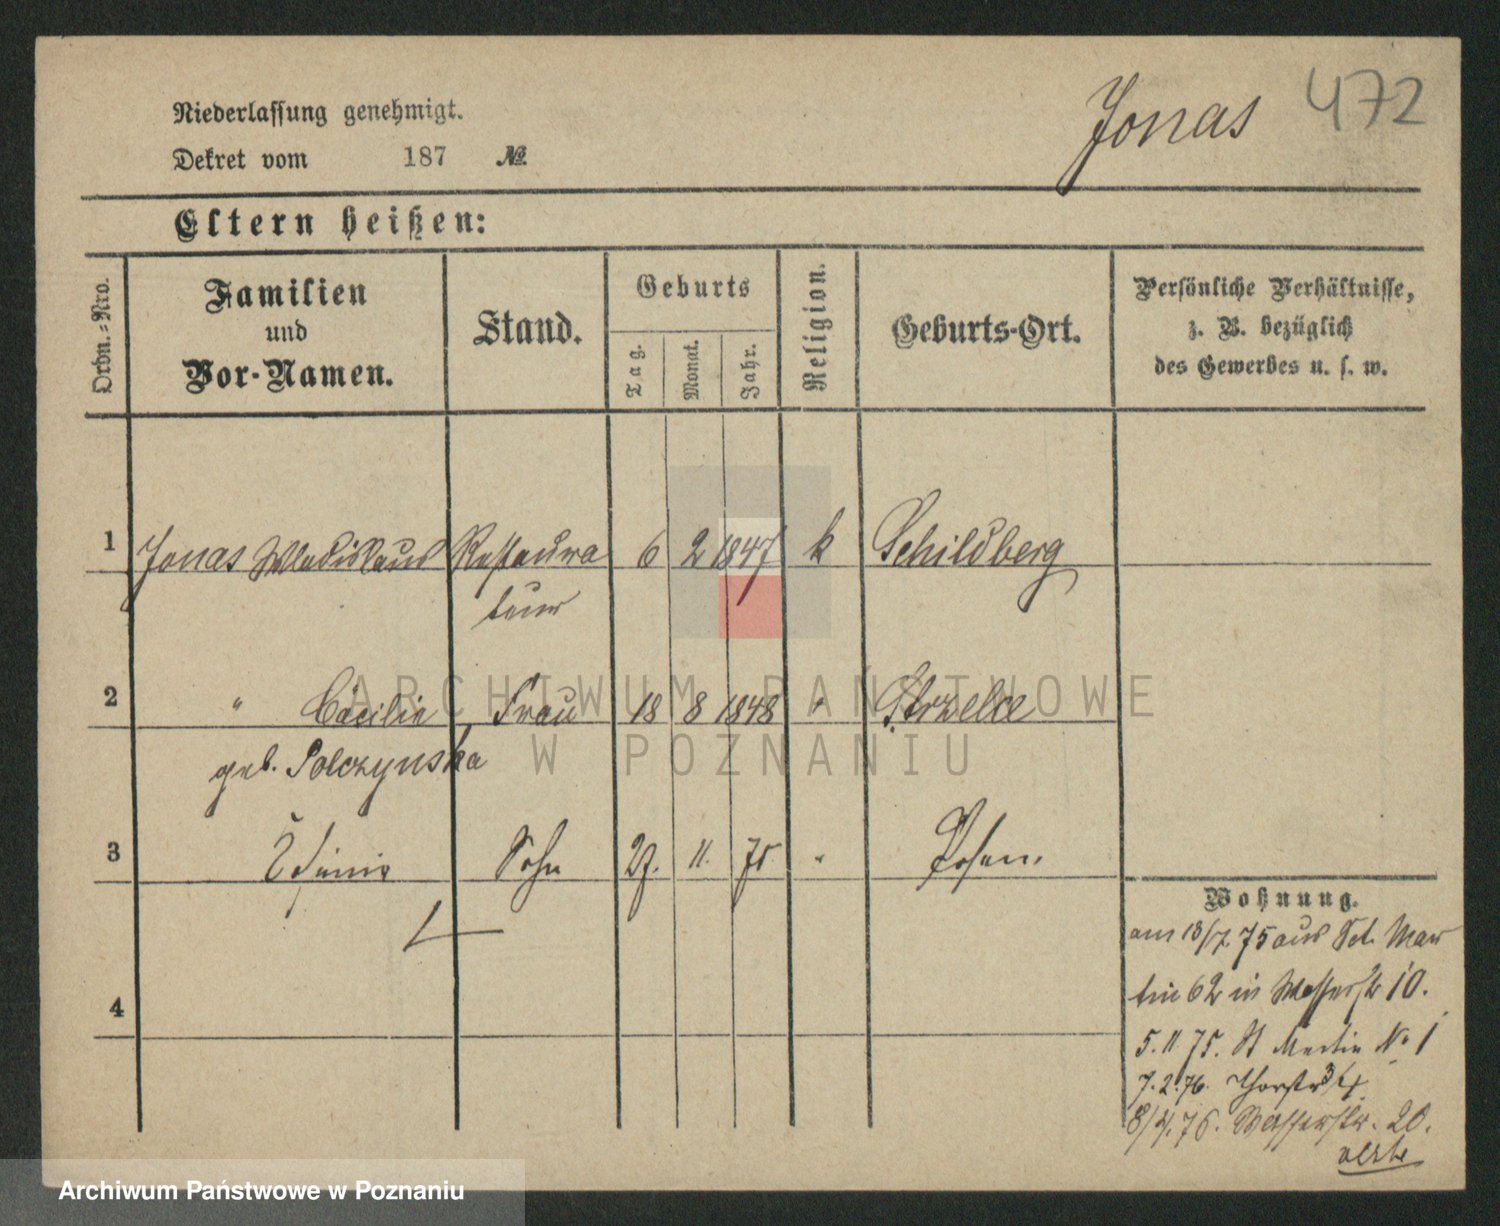 Jonas 472
Niederlassung genehmigt.
Dekret vom 187 №
Eltern heißen:
Ordn.-Nro. Familien und Vor-Namen. Stand. Geburts Tag. Monat. Jahr. Religion. Geburts-Ort. Persönliche Verhältnisse, z. B. bezüglich des Gewerbes u. s. w.
1 Jonas Wladislaus Restaura 6 2 1847 k Schildberg
teur
2 " Cäcilie Frau 18 8 1848 " Strzelce
geb. Polczynska
3 Sohn 27. 11. 75 " Posen.
4
Wohnung.
am 13/7. 75 aus Sct. Mar
tin 62 in Wasserstr 10.
5. 11. 75. St Martin No 1
7. 2. 76. Thorstr
8/4. 76. Wasserstr. 20.
ARCHIWUM PAŃSTWOWE
W POZNANIU
Archiwum Państwowe w Poznaniu